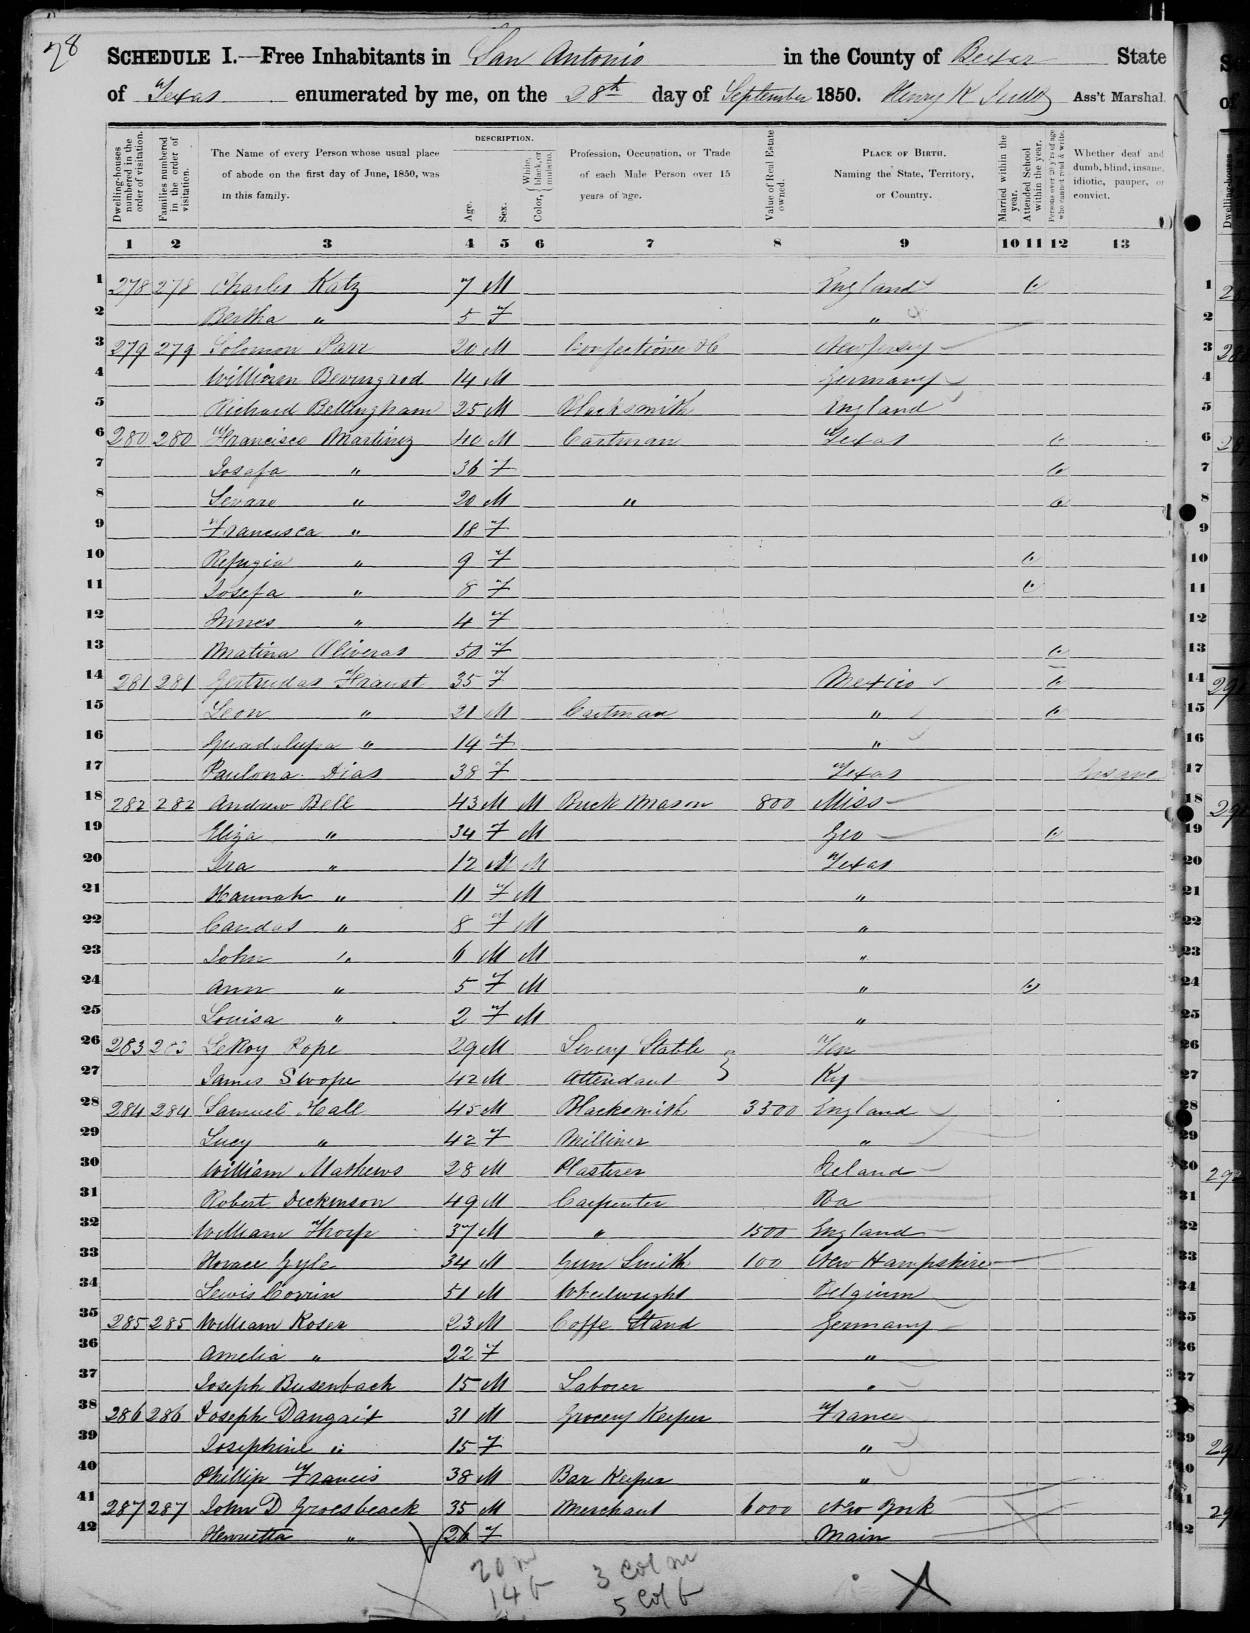 78
SCHEDULE I.—Free Inhabitants in San Antonio in the County of Bexar State
of Texas enumerated by me, on the 28th day of September 1850. Henry K Ass't Marshal.
Dwelling-houses numbered in the order of visitation.
Families numbered in the order of visitation.
The Name of every Person whose usual place of abode on the first day of June, 1850, was in this family.
DESCRIPTION.
Age.
Sex.
Color, { White, black, or mulatto.
Profession, Occupation, or Trade of each Male Person over 15 years of age.
Value of Real Estate owned.
PLACE OF BIRTH. Naming the State, Territory, or Country.
Married within the year.
Attended School within the year.
Persons over 20 y'rs of age who cannot read & write.
Whether deaf and dumb, blind, insane, idiotic, pauper, or convict.
1 2 3 4 5 6 7 8 9 10 11 12 13
1 278 278 Charles Katz 7 M England 1
2 Bertha " 5 F " 2
3 279 279 Solomon Parr 20 M Confectioner &c New Jersey 3
4 William 14 M Germany 4
5 Richard Bellingham 25 M Blacksmith England 5
6 280 280 Francisco Martinez 40 M Cartman Texas 6
7 Josafa " 36 F 7
8 " 20 M " 8
9 Francisca " 18 F 9
10 Refugia " 9 F 10
11 Josefa " 8 F 11
12 " 4 F 12
13 Matina Oliveras 50 F 13
14 281 281 Gertrudas 35 F Mexico 14
15 Leon " 21 M Cartman " 15
16 Guadalupa " 14 F " 16
17 Paulona Dias 38 F Texas Insane 17
18 282 282 Andrew Bell 43 M M Brick Mason 800 Miss 18
19 Eliza " 34 F M Geo 19
20 Ira " 12 M M Texas 20
21 Hannah " 11 F M " 21
22 Candas " 8 F M " 22
23 John " 6 M M " 23
24 Ann " 5 F M " 24
25 Louisa " 2 F M " 25
26 283 283 LeRoy Pope 29 M Livery Stable } Ten 26
27 James Swope 42 M Attendant Ky 27
28 284 284 Samuel Hall 45 M Blacksmith 3500 England 28
29 Lucy " 42 F Milliner " 29
30 William Mathews 28 M Plasterer Ireland 30
31 Robert Dickenson 49 M Carpenter Pa 31
32 William Thorp 37 M " 1500 England 32
33 Horace Gyle 34 M Gun Smith 100 New Hampshire 33
34 Lewis Corrin 51 M Wheelwright Belgium 34
35 285 285 William Roser 23 M Coffe Stand Germany 35
36 Amelia " 22 F " 36
37 Joseph Busenbach 15 M Laborer " 37
38 286 286 Joseph 31 M Grocery Keeper France
39 Josephine " 15 F " 39
40 Phillip Francis 38 M Bar Keeper " 40
41 287 287 John D Groesbeack 35 M Merchant 6000 New York 41
42 Henrietta " 26 F Main 42
20 m 3 Col m
14 f 5 Col f